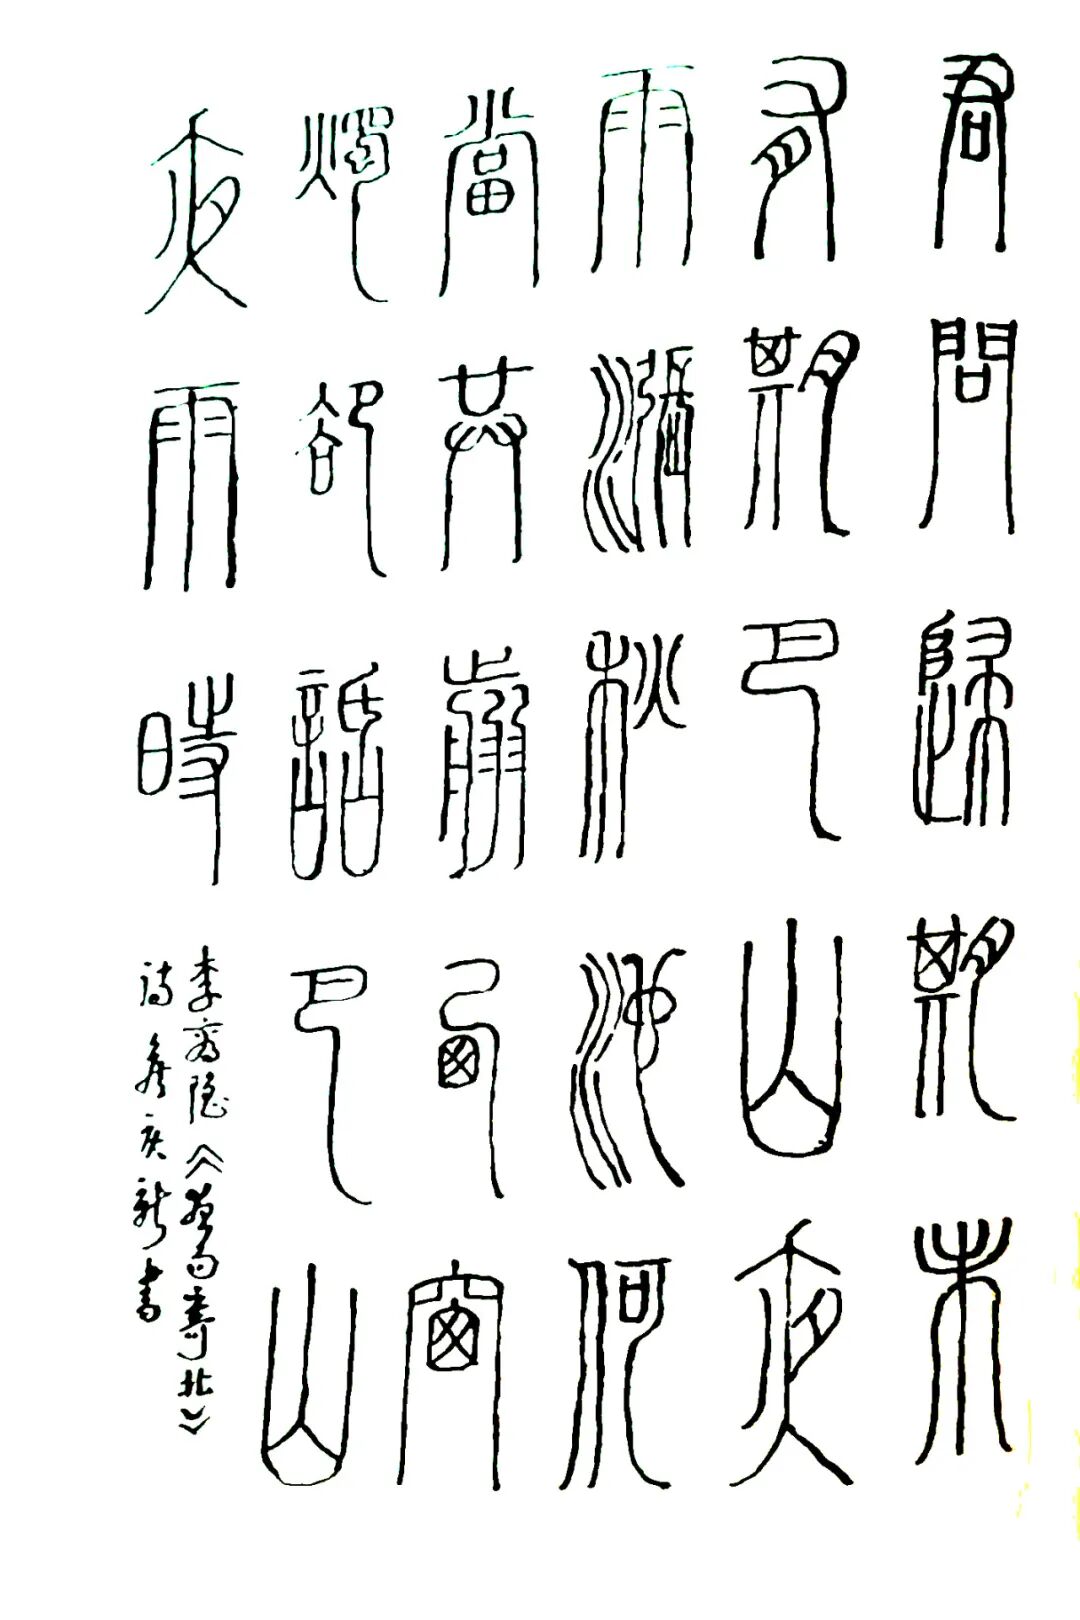 君問歸期未
有期巴山夜
雨漲秋池何
當共剪西窗
燭卻話巴山
夜雨時
李商隐《夜雨寄北》
诗 書